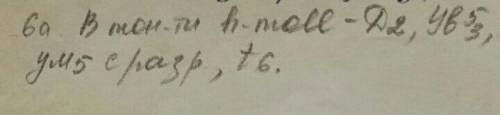 6а В тон-ти h-moll - Д2, Ув5/3,
ум5 с разр, t6.